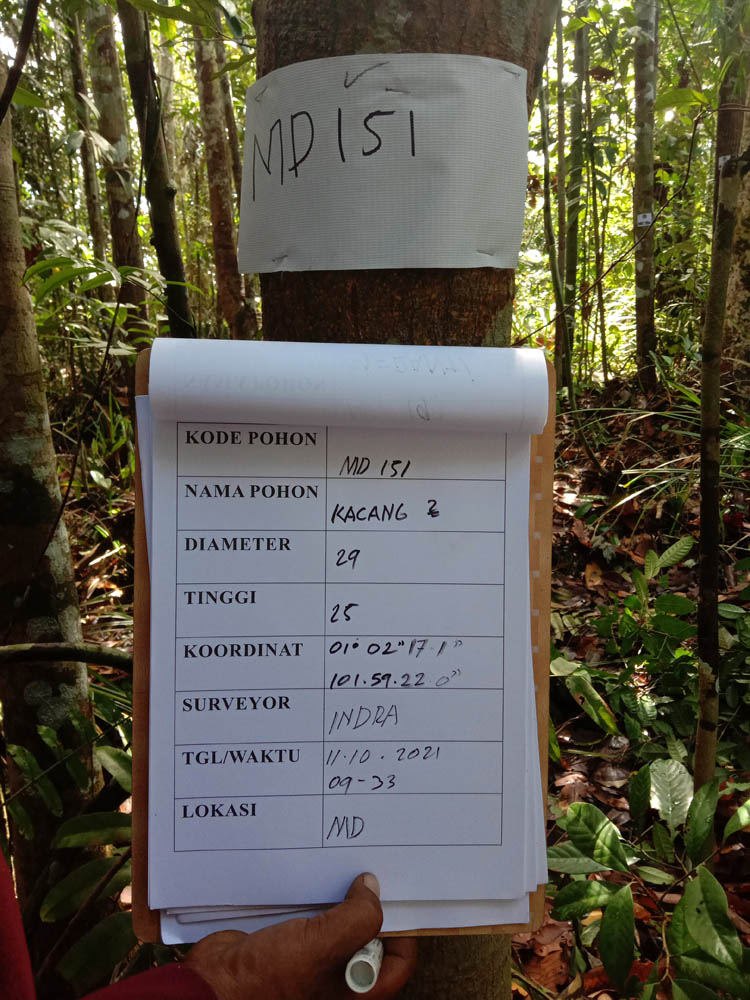 MD 151
KODE POHON
MD 151
NAMA POHON
KACANG 2
DIAMETER
29
TINGGI
25
KOORDINAT
01° 02" 17.1"
101.59.22.0"
SURVEYOR
INDRA
TGL/WAKTU
11.10.2021
09-33
LOKASI
MD